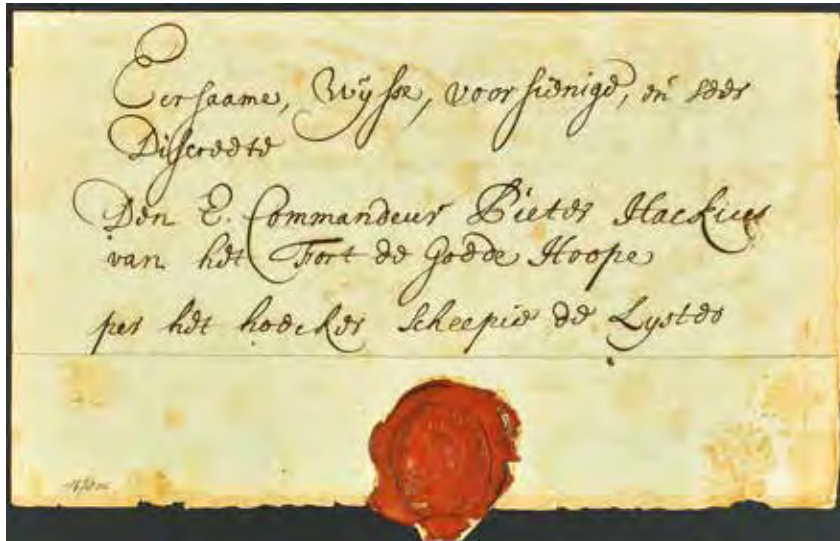 Eersaame, Wÿsse, voorsienige, en seer
Discreete
Den E. Commandeur Pieter Hackius
van het Fort de Goede Hoope
per het hoecker scheepie de Lyster